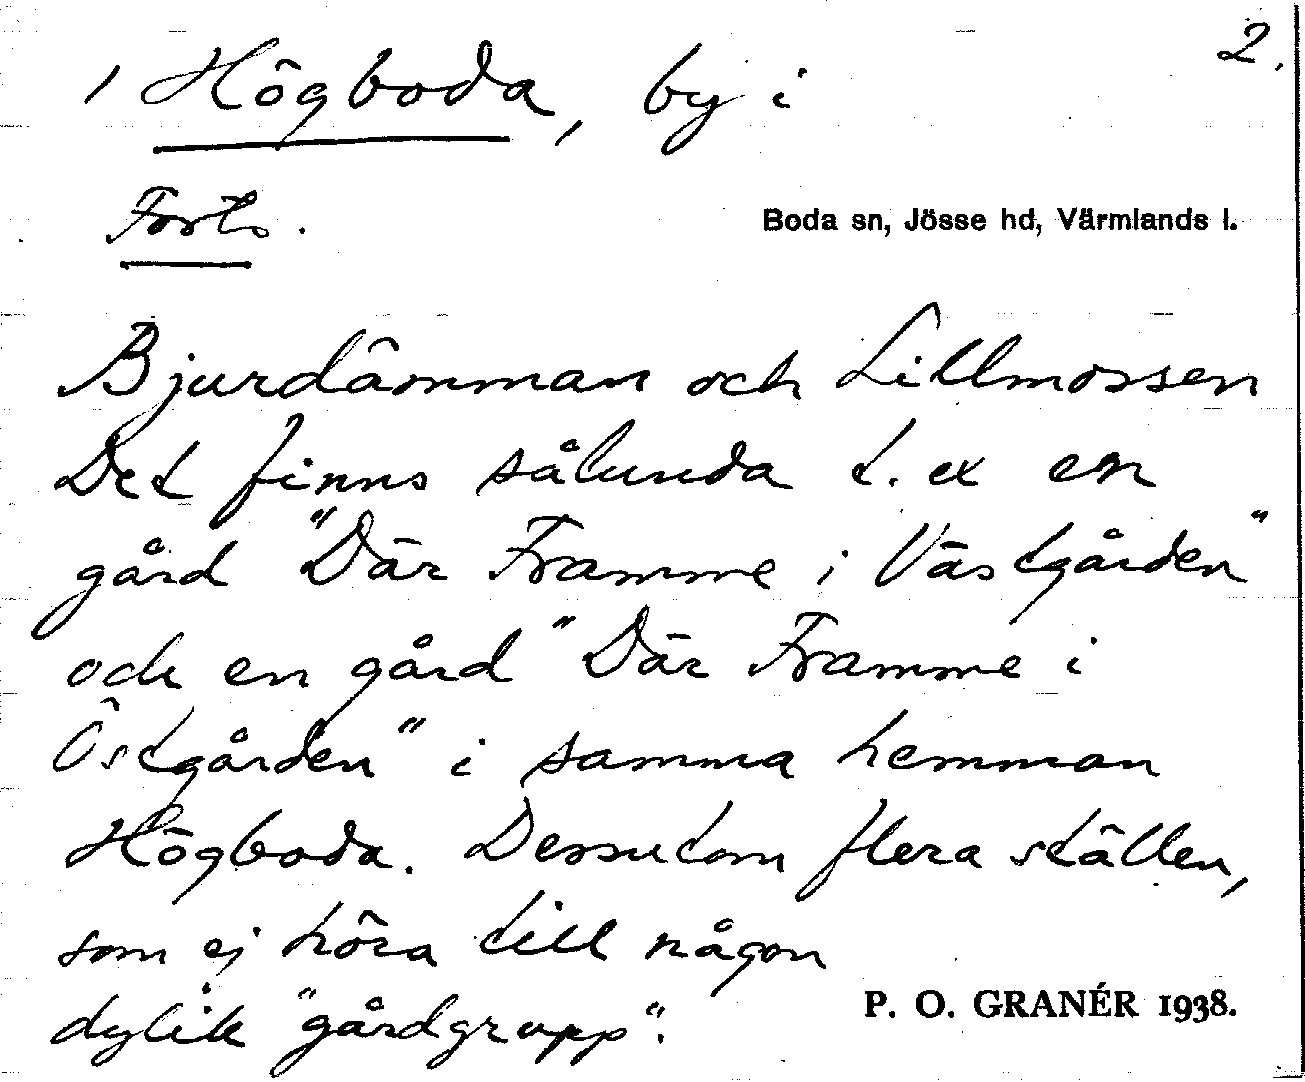 2.
1 Högboda, by i
Forts.
Boda sn, Jösse hd, Värmlands l.
Bjurdämman och Lillmossen
Det finns sålunda t. ex en
gård "Där Framme i Västgården"
och en gård "Där Framme i
Östgården" i samma hemman
Högboda. Dessutom flera ställen,
som ej höra till någon
dylik "gårdgrupp".
P. O. GRANÉR 1938.